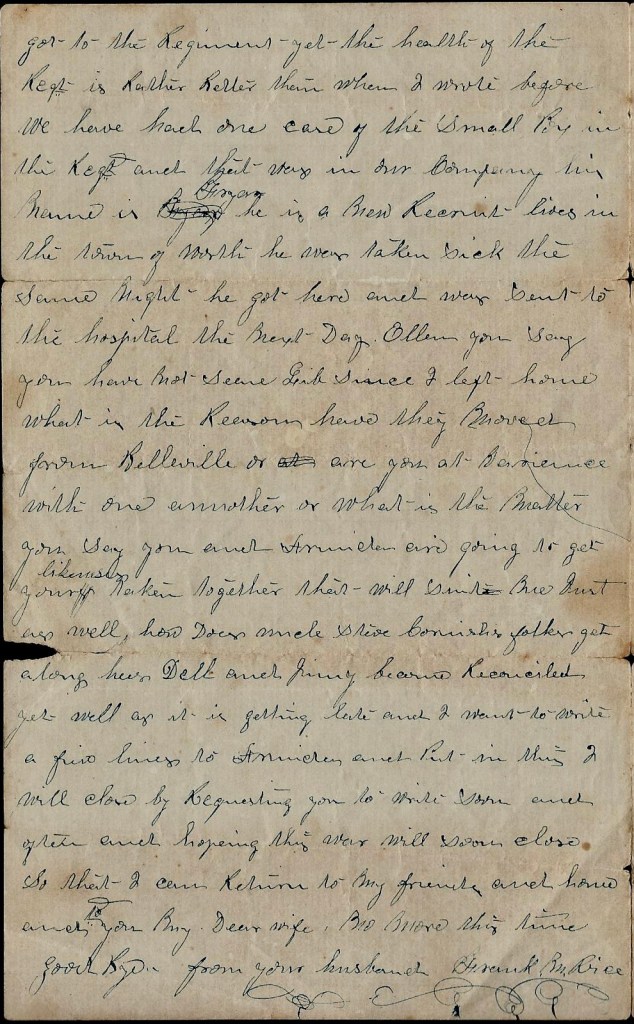 got to the Regiment yet the health of the
Regt is Rather Better than when I wrote before
We have had one case of the Small Pox in
the Regt and that was in our Company his
Name is Fryar he is a New Recruit lives in
the town of Worth he was taken Sick the
Same Night he got here and was Sent to
the hospital the Next Day. Ollen you Say
you have Not Seene Gib Since I left home
what is the Reason have they Moved
from Belleville or at are you at Varience
with one annother or what is the Matter
you Say you and Arminda are going to get
your likeness taken together that will Suite Me Just
as well, how Does uncle Steve Cornishes folks get
along has Dell and Jimy became Reconciled
yet well as it is getting late and I want to write
a few lines to Arminda and Put in this I
will close by Requesting you to write Soon and
often and hoping this war will Soon close
So that I can Return to My friends and home
and to you My Dear wife, No More this time
good Bye from your husband Frank M. Rice